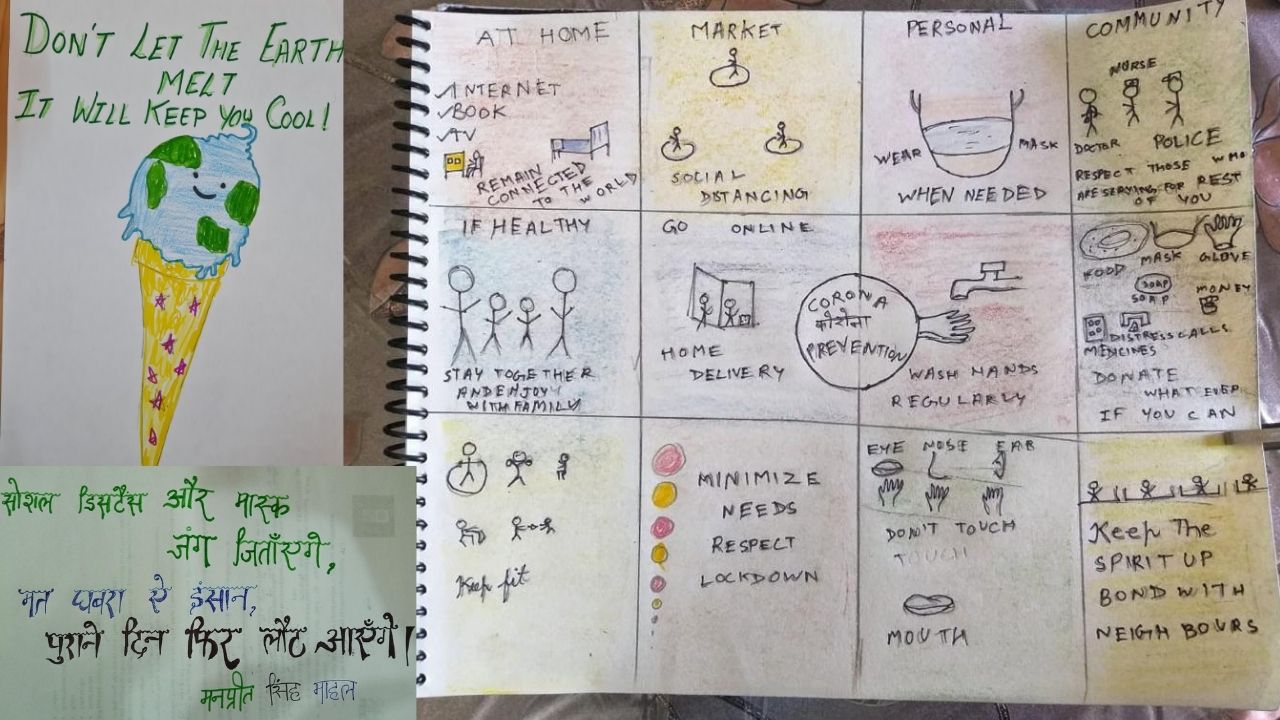 DON'T LET THE EARTH
MELT
IT WILL KEEP YOU COOL!
सोशल डिसटैंस और मास्क
जंग जिताँएगे,
मत घबरा ऐ इंसान,
पुराने दिन फिर लौट आएँगे।
मनप्रीत सिंह माहल
AT HOME
INTERNET
BOOK
TV
REMAIN
CONNECTED
TO THE
WORLD
MARKET
SOCIAL
DISTANCING
PERSONAL
WEAR
MASK
WHEN NEEDED
COMMUNITY
NURSE
DOCTOR
POLICE
RESPECT THOSE WHO
ARE SERVING FOR REST
OF YOU
IF HEALTHY
STAY TOGETHER
AND ENJOY
WITH FAMILY
GO ONLINE
HOME
DELIVERY
CORONA
कोरोना
PREVENTION
WASH HANDS
REGULARLY
FOOD
MASK
GLOVE
SOAP
SOAP
MONEY
DISTRESS CALLS
MEDICINES
DONATE
WHAT EVER
IF YOU CAN
Keep fit
MINIMIZE
NEEDS
RESPECT
LOCKDOWN
EYE NOSE EAR
DON'T TOUCH
TOUCH
MOUTH
Keep The
SPIRIT UP
BOND WITH
NEIGHBOURS